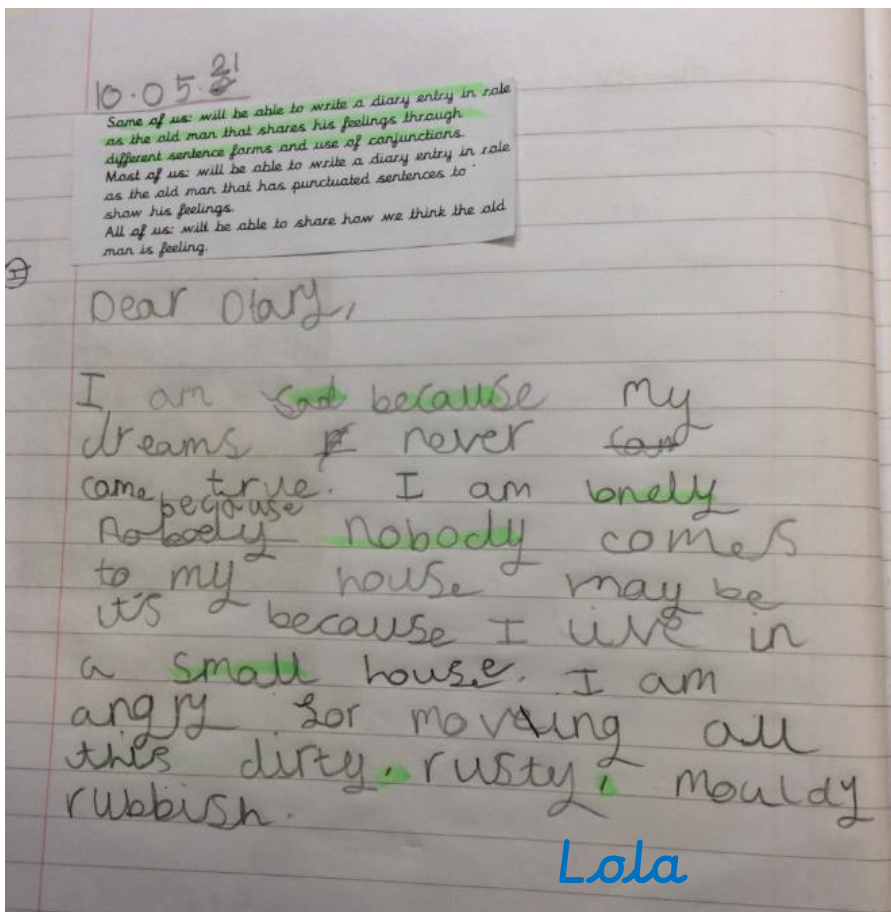 10.05.21
Some of us: will be able to write a diary entry in role
as the old man that shares his feelings through
different sentence forms and use of conjunctions.
Most of us: will be able to write a diary entry in role
as the old man that has punctuated sentences to
show his feelings.
All of us: will be able to share how we think the old
man is feeling.
I
Dear Diary,
I am sad because my
dreams never
came true. I am lonely
because
Nobody nobody comes
to my house may be
it's because I live in
a small house. I am
angry for moving all
this dirty, rusty, mouldy
rubbish.
Lola